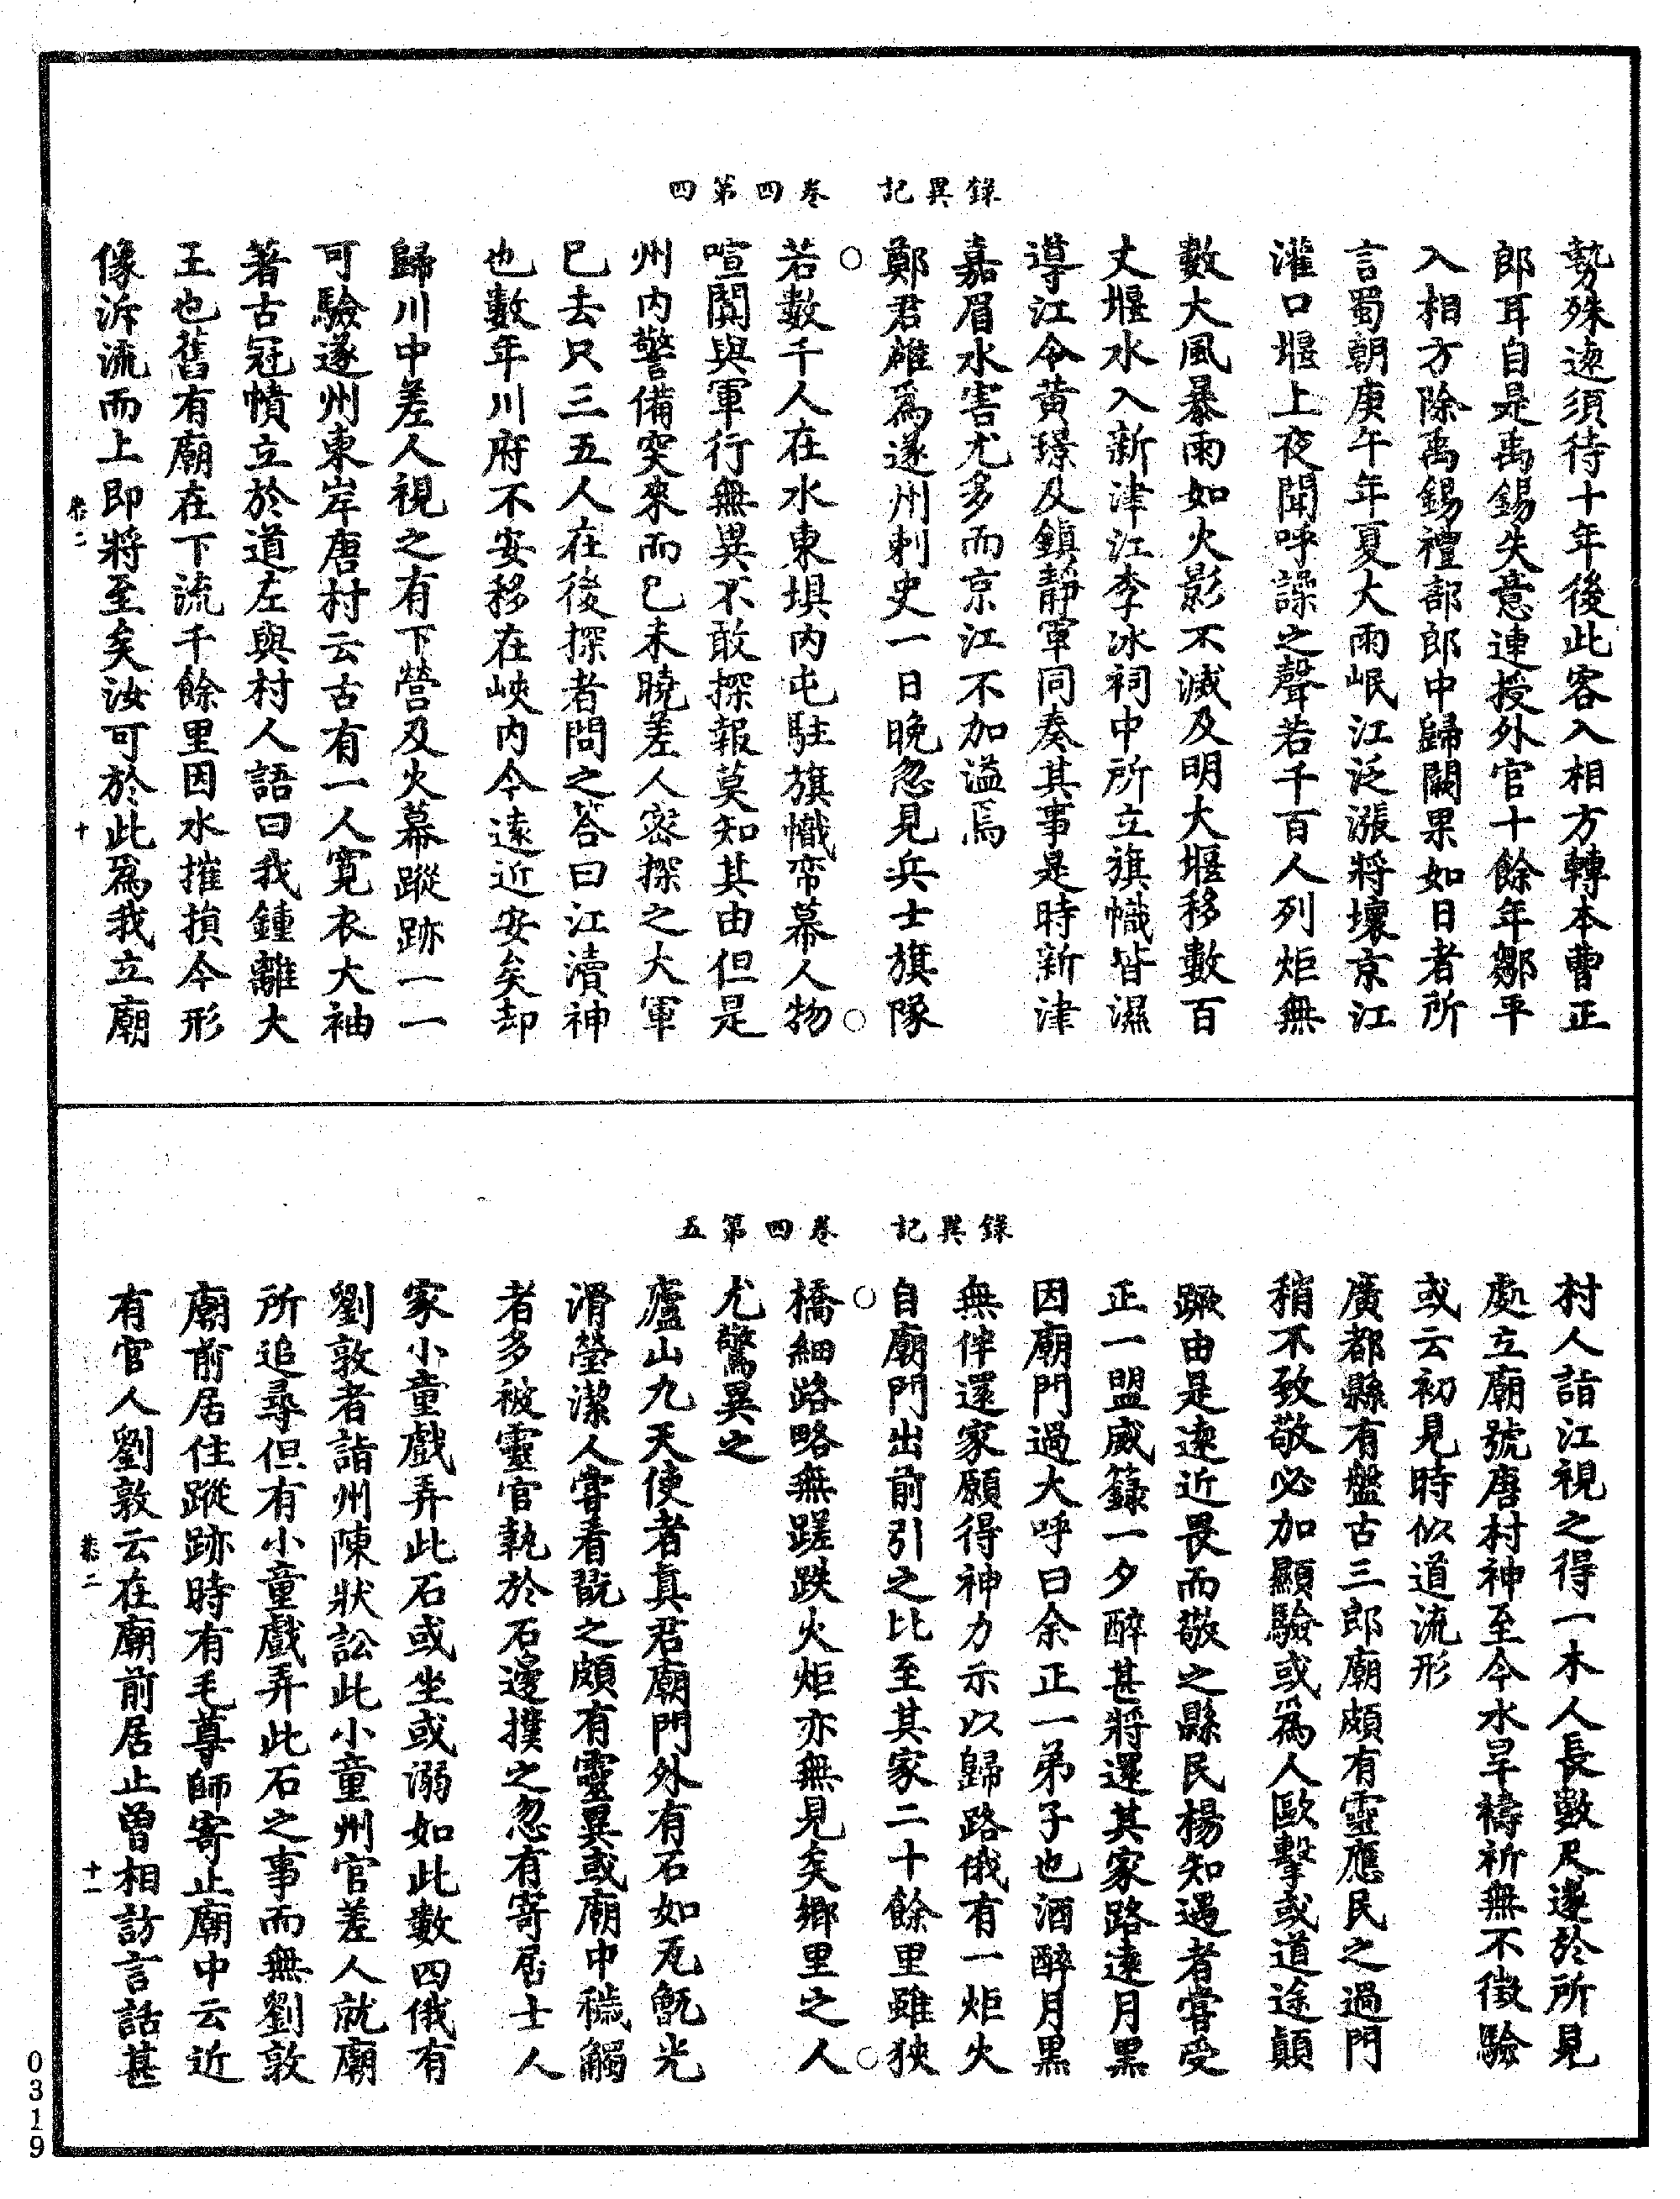 錄異記　卷四第四
勢殊遠須待十年後此客入相方轉本曹正
郎耳自是禹錫失意連授外官十餘年鄒平
入相方除禹錫禮部郎中歸闕果如日者所
言蜀朝庚午年夏大雨岷江泛漲將壞京江
灌口堰上夜聞呼譟之聲若千百人列炬無
數大風暴雨如火影不滅及明大堰移數百
丈堰水入新津江李冰祠中所立旗幟皆濕
導江令黄璟及鎮靜軍同奏其事是時新津
嘉眉水害尤多而京江不加溢焉
鄭君雄爲遂州刺史一日晚忽見兵士旗隊
若數千人在水東壩内屯駐旗幟帟幕人物
喧鬨與軍行無異不敢探報莫知其由但是
州内警備突來而已未曉差人密探之大軍
已去只三五人在後探者問之答曰江瀆神
也數年川府不安移在峽内今遠近安矣却
歸川中差人視之有下營及火幕蹤跡一一
可驗遂州東岸唐村云古有一人寛衣大袖
著古冠幘立於道左與村人語曰我鍾離大
王也舊有廟在下流千餘里因水摧損今形
像泝流而上即將至矣汝可於此爲我立廟
卷二
十
錄異記　卷四第五
村人詣江視之得一木人長數尺遂於所見
處立廟號唐村神至今水旱禱祈無不徵驗
或云初見時似道流形
廣都縣有盤古三郎廟頗有靈應民之過門
稍不致敬必加顯驗或爲人歐擊或道途顛
蹶由是遠近畏而敬之縣民楊知遇者嘗受
正一盟威籙一夕醉甚將還其家路遠月黑
因廟門過大呼曰余正一弟子也酒醉月黒
無伴還家願得神力示以歸路俄有一炬火
自廟門出前引之比至其家二十餘里雖狹
橋細路略無蹉跌火炬亦無見矣鄉里之人
尤驚異之
廬山九天使者真君廟門外有石如瓦甎光
滑瑩潔人嘗看翫之頗有靈異或廟中穢觸
者多被靈官執於石邊撲之忽有寄居士人
家小童戲弄此石或坐或溺如此數四俄有
劉敦者詣州陳狀訟此小童州官差人就廟
所追尋但有小童戲弄此石之事而無劉敦
廟前居住蹤跡時有毛尊師寄止廟中云近
有官人劉敦云在廟前居止曾相訪言話甚
卷二
十一
0319